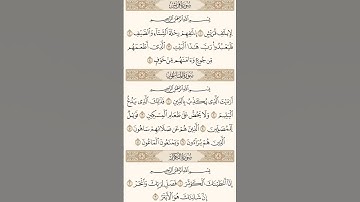 سورة قريش
بسم الله الرحمن الرحيم
لِإِيلَٰفِ قُرَيْشٍ ۝ إِۦلَٰفِهِمْ رِحْلَةَ ٱلشِّتَآءِ وَٱلصَّيْفِ ۝
فَلْيَعْبُدُوا۟ رَبَّ هَٰذَا ٱلْبَيْتِ ۝ ٱلَّذِىٓ أَطْعَمَهُم
مِّن جُوعٍ وَءَامَنَهُم مِّنْ خَوْفٍۭ ۝
سورة الماعون
بسم الله الرحمن الرحيم
أَرَءَيْتَ ٱلَّذِى يُكَذِّبُ بِٱلدِّينِ ۝ فَذَٰلِكَ ٱلَّذِى يَدُعُّ
ٱلْيَتِيمَ ۝ وَلَا يَحُضُّ عَلَىٰ طَعَامِ ٱلْمِسْكِينِ ۝ فَوَيْلٌ
لِّلْمُصَلِّينَ ۝ ٱلَّذِينَ هُمْ عَن صَلَاتِهِمْ سَاهُونَ ۝
ٱلَّذِينَ هُمْ يُرَآءُونَ ۝ وَيَمْنَعُونَ ٱلْمَاعُونَ ۝
سورة الكوثر
بسم الله الرحمن الرحيم
إِنَّآ أَعْطَيْنَٰكَ ٱلْكَوْثَرَ ۝ فَصَلِّ لِرَبِّكَ وَٱنْحَرْ ۝
إِنَّ شَانِئَكَ هُوَ ٱلْأَبْتَرُ ۝